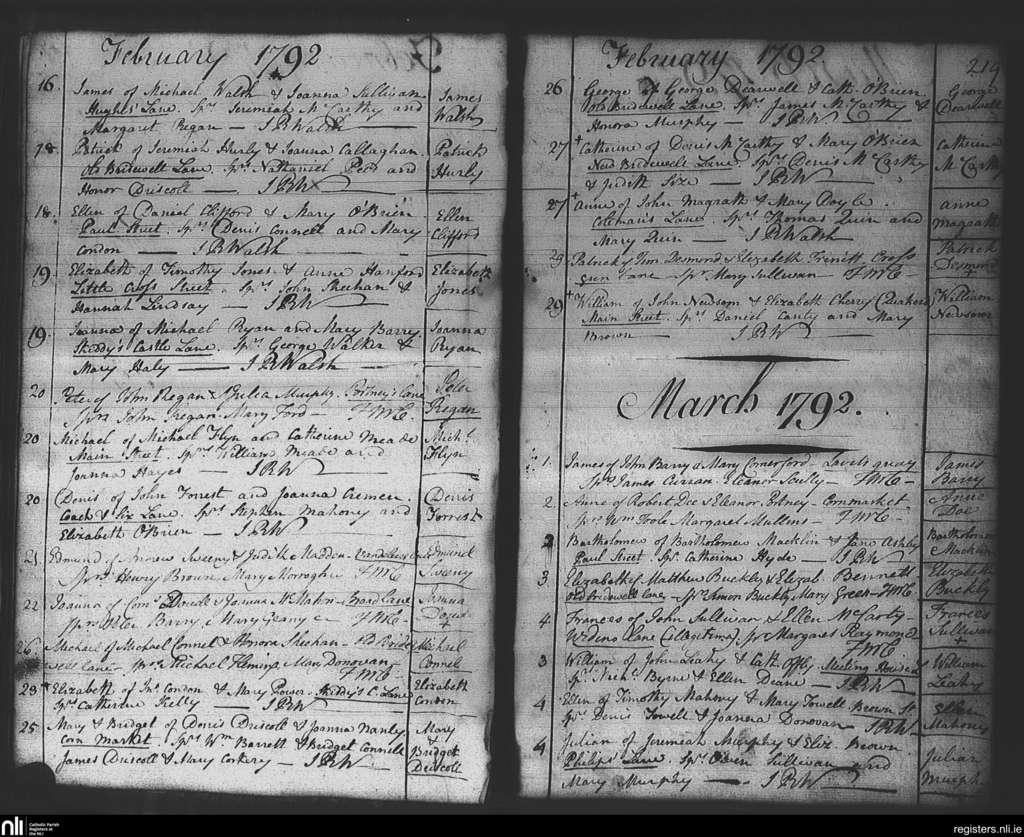 February 1792
16. James of Michael Walsh & Joanna Sullivan
Hughes' Lane. Sprs Jeremiah McCarthy and
Margaret Regan — J B Walsh
James
Walsh
18. Patrick of Jeremiah Hurly & Joanna Callaghan.
Old Bridewell Lane. Sprs Nathaniel and
Honor Driscoll — J B W
Patrick
Hurly
18. Ellen of Daniel Clifford & Mary O'Brien
Paul Street. Sprs Denis Connell and Mary
Condon — J B Walsh
Ellen
Clifford
19. Elizabeth of Timothy Jones & Anne Hanford
Little Cross Street. Sprs John Sheehan &
Hannah Lindsay — J B W
Elizabeth
Jones
19. Joanna of Michael Ryan and Mary Barry
Skiddy's Castle Lane. Sprs George Walker &
Mary Haly — J B Walsh
Joanna
Ryan
20 Peter of John Regan & Julia Murphy. Portney's Lane
Sprs John Regan. Mary Ford —
Peter
Regan
20 Michael of Michael Flyn and Catherine Meade
Main Street. Sprs William Meade and
Joanna Hayes — J B W
Michl
Flyn
20 Denis of John Forrest and Joanna Cremen.
Coach & Six Lane. Sprs Stephen Mahony and
Elizabeth O'Brien — J B W
Denis
Forrest
21. Edmund of Andrew Sweeny & Judith Madden
Sprs Henry Brown, Mary Morrogh
Edmund
Sweny
22 Joanna of Corns & Joanna McMahon — Broad Lane
Sprs Peter Barry & Mary
Joanna
26 Michael of Michael Connel & Honora Sheehan — Old Bride
well Lane — Sprs Michael Fleming Mary Donovan
Michael
Connel
23 + Elizabeth of Jno. Condon & Mary Power. Skiddy's C. Lane
Sprs Catherine Kelly — J B W
Elizabeth
Condon
25 Mary & Bridget of Denis Driscoll & Joanna Hanly
Corn Market. Sprs Wm Barrett & Bridget Connell
James Driscoll & Mary Corkery — J B W
Mary
&
Bridget
Driscoll
February 1792.
219
26 George of George Dearwell & Cath. O'Brien
Old Bridewell Lane. Sprs James McCarthy &
Honora Murphy — J B W
George
Dearwell
27 + Catherine of Denis McCarthy & Mary O'Brien
New Bridewell Lane. Sprs Denis McCarthy
& Judith — J B W
Catherine
McCarthy
27 + Anne of John Magrath & Mary Doyle.
Coleman's Lane. Sprs Thomas Quin and
Mary Quin — J B Walsh
Anne
Magrath
29 Patrick of Tim Desmond & Elizabeth Cross
gun Lane — Spr Mary Sullivan —
Patrick
Desmond
29 + William of John Newsom & Elizabeth Cherry (Quakers)
Main Street. Sprs Daniel Canty and Mary
Brown — J B W
William
Newsom
March 1792.
1. James of John Barry & Mary Comerford — Lavits quay
Sprs James Curran. Eleanor Scully —
James
Barry
2. Anne of Robert Doe & Eleanor Portney — Cornmarket
Sprs Wm Toole Margaret Mullins —
Anne
Doe
2 Bartholomew of Bartholomew Macklin & Jane Ashby
Paul Street. Spr Catherine Hyde — J B W
Bartholomew
Macklin
3. Elizabeth of Matthew Buckly & Elizab. Bennett
Old Bridewell Lane — Sprs Simon Buckly Mary Green
Elizabeth
Buckly
4 Frances of John Sullivan & Ellen McCarty
Lane Spr Margaret Raymond
Frances
Sullivan
3 William of John Leahy & Cath. Meeting House L
Sprs Richd Byrne & Ellen Deane — J B W
William
Leahy
4 Ellen of Timothy Mahony & Mary Towell Brown St
Sprs Denis Towell & Joanna Donovan J B W
Ellen
Mahony
4 Julian of Jeremiah Murphy & Eliz Brown
Philips' Lane. Sprs Owen Sullivan and
Mary Murphy — J B W
Julian
Murphy
nli
Catholic Parish
Registers at
the NLI
registers.nli.ie